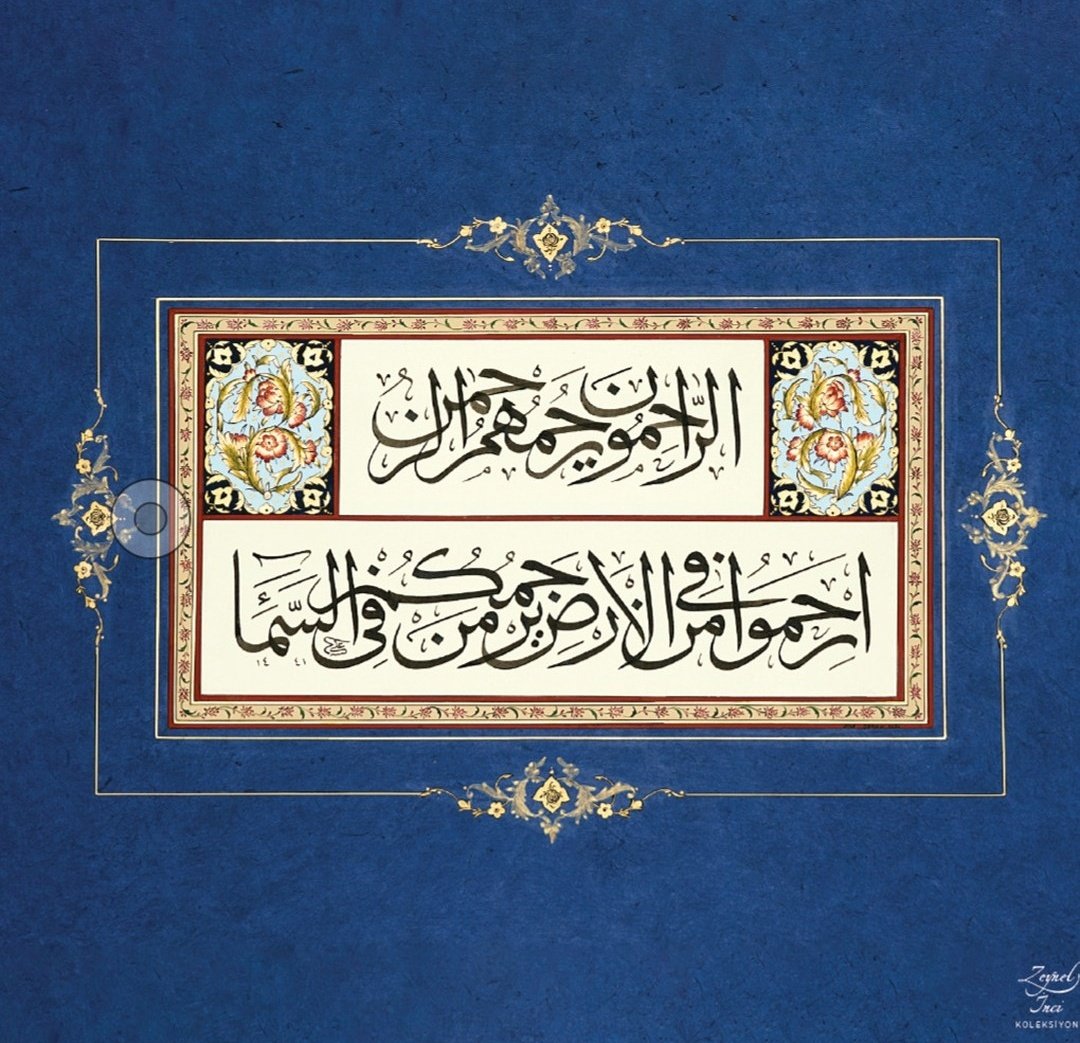 الرَّاحمون يرحمهم الرحمن
ارحموا من في الأرض يرحمكم من في السَّمَاء
١٤٤١
Zeynel
İnci
KOLEKSİYON